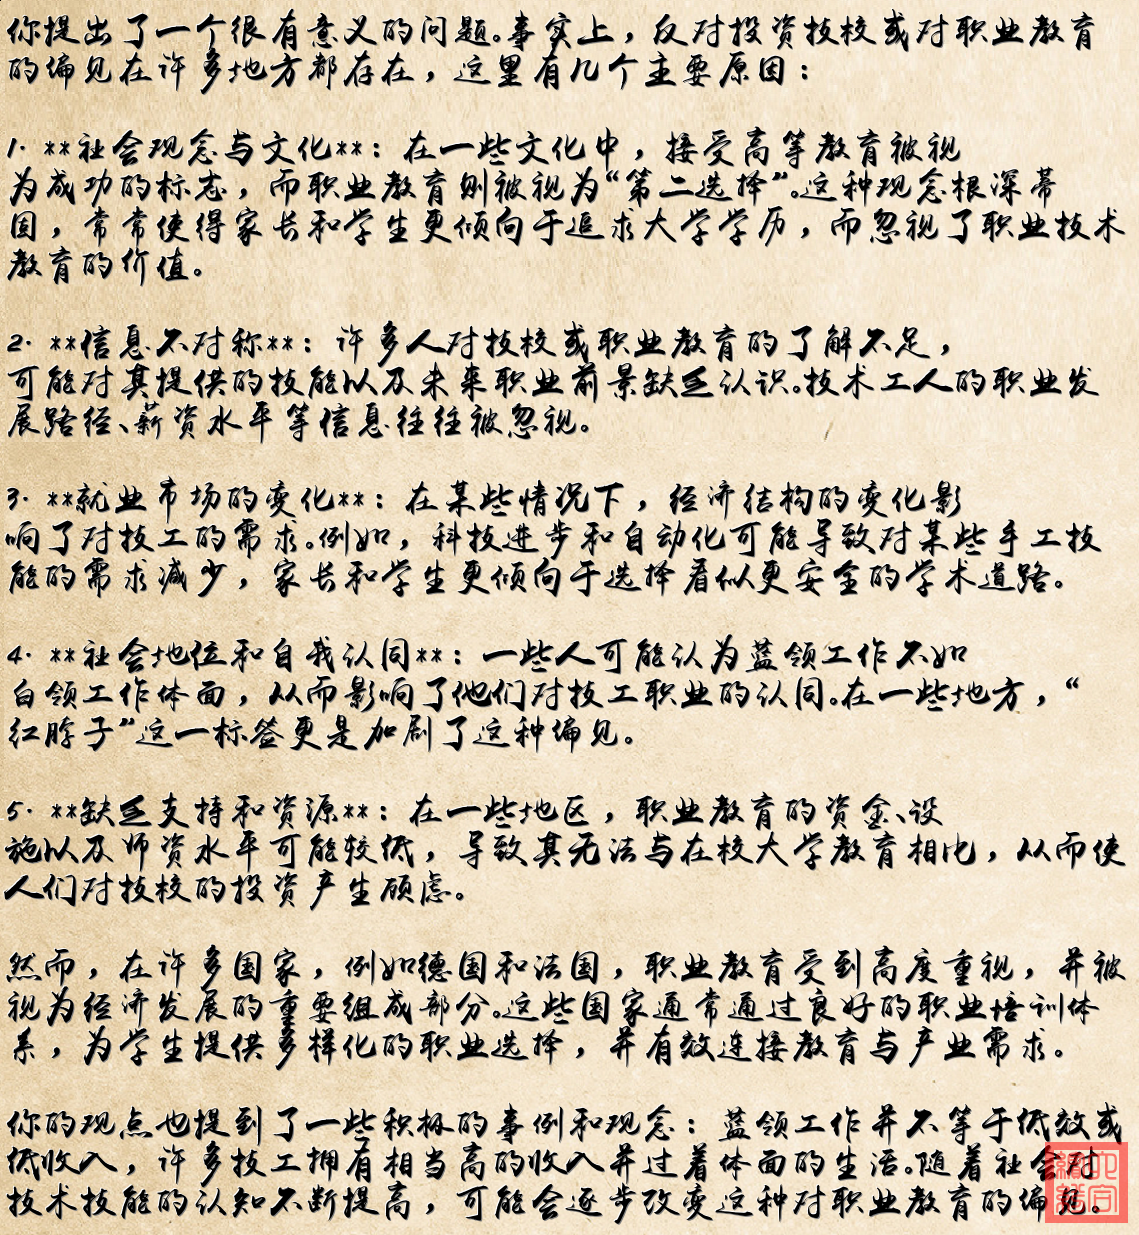 你提出了一个很有意义的问题。事实上，反对投资技校或对职业教育
的偏见在许多地方都存在，这里有几个主要原因：
1. **社会观念与文化**：在一些文化中，接受高等教育被视
为成功的标志，而职业教育则被视为“第二选择”。这种观念根深蒂
固，常常使得家长和学生更倾向于追求大学学历，而忽视了职业技术
教育的价值。
2. **信息不对称**：许多人对技校或职业教育的了解不足，
可能对其提供的技能以及未来职业前景缺乏认识。技术工人的职业发
展路径、薪资水平等信息往往被忽视。
3. **就业市场的变化**：在某些情况下，经济结构的变化影
响了对技工的需求。例如，科技进步和自动化可能导致对某些手工技
能的需求减少，家长和学生更倾向于选择看似更安全的学术道路。
4. **社会地位和自我认同**：一些人可能认为蓝领工作不如
白领工作体面，从而影响了他们对技工职业的认同。在一些地方，“
红脖子”这一标签更是加剧了这种偏见。
5. **缺乏支持和资源**：在一些地区，职业教育的资金、设
施以及师资水平可能较低，导致其无法与在校大学教育相比，从而使
人们对技校的投资产生顾虑。
然而，在许多国家，例如德国和法国，职业教育受到高度重视，并被
视为经济发展的重要组成部分。这些国家通常通过良好的职业培训体
系，为学生提供多样化的职业选择，并有效连接教育与产业需求。
你的观点也提到了一些积极的事例和观念：蓝领工作并不等于低效或
低收入，许多技工拥有相当高的收入并过着体面的生活。随着社会对
技术技能的认知不断提高，可能会逐步改变这种对职业教育的偏见。